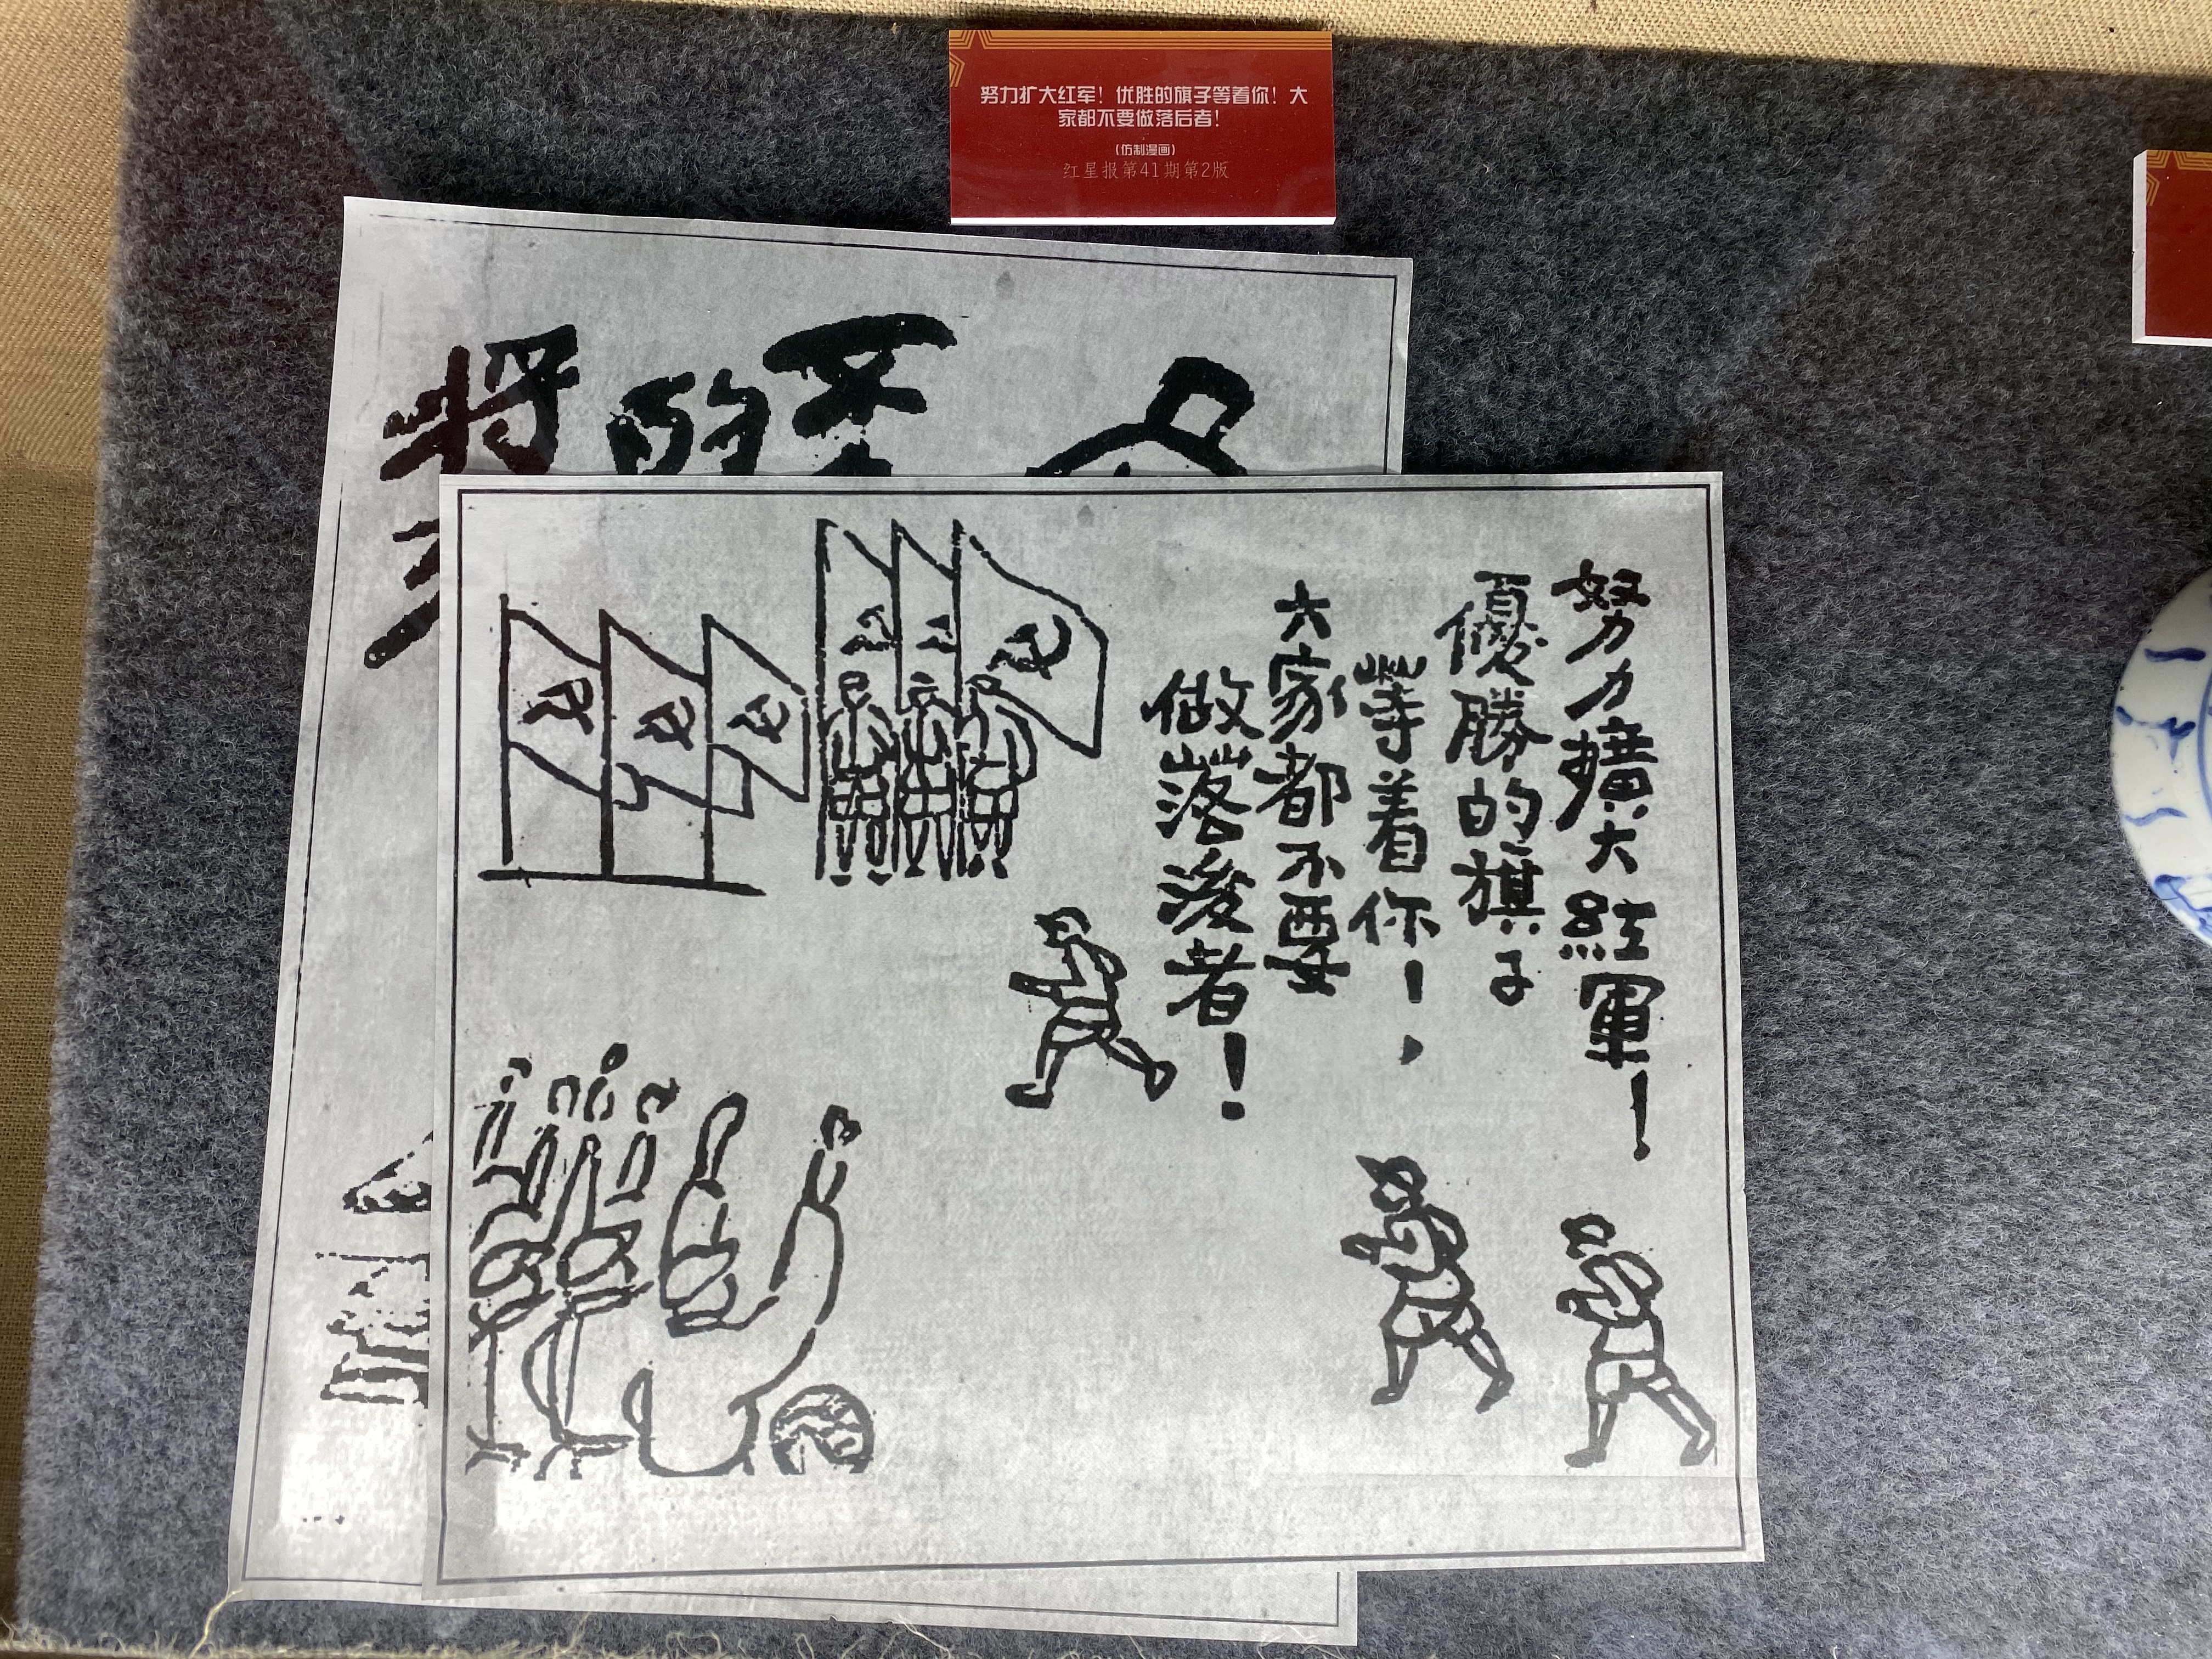 努力扩大红军！优胜的旗子等着你！大
家都不要做落后者！
(仿制漫画)
红星报第41期第2版
努力擴大紅軍！
優勝的旗子
等着你！，
大家都不要
做落後者！
不
的
将